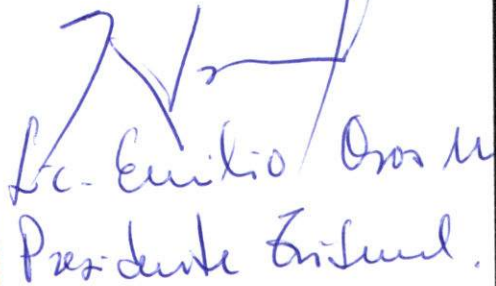 Lic. Emilio Osos M
Presidente Tribunal.